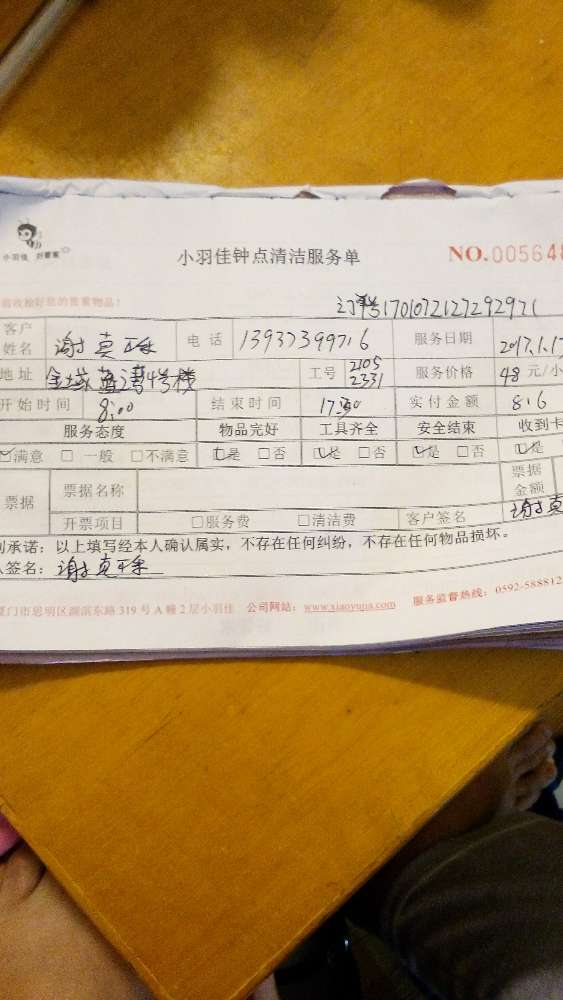 小羽佳 好管家
小羽佳钟点清洁服务单
NO.005648
前收检好您的贵重物品!
订单号1701072127292971
客户姓名 谢真 电话 13937399716 服务日期 2017.1.17
地址 金域蓝湾4号楼 工号 2105 2331 服务价格 48 元/小
开始时间 8:00 结束时间 17:30 实付金额 816
服务态度 物品完好 工具齐全 安全结束 收到卡
☑满意 □一般 □不满意 ☑是 □否 ☑是 □否 ☑是 □否 ☑是
票据 票据名称 票据金额
开票项目 □服务费 □清洁费 客户签名 谢真
承诺:以上填写经本人确认属实,不存在任何纠纷,不存在任何物品损坏。
签名:谢真
厦门市思明区湖滨东路319号A幢2层小羽佳 公司网站:www.xiaoyujia.com 服务监督热线:0592-588812